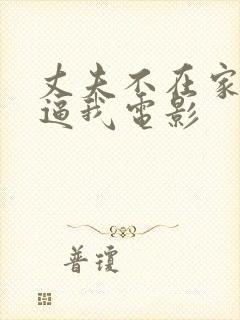 丈夫不在家
逼我电影
普琼